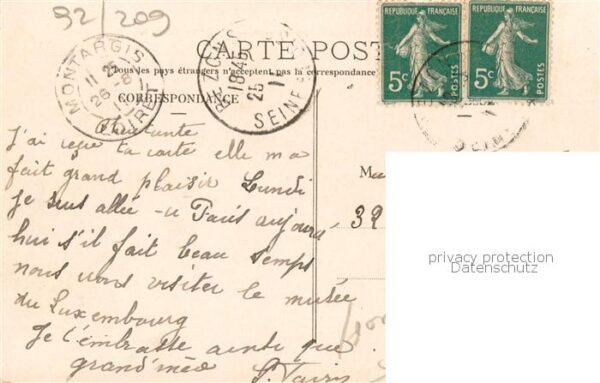 92/209
CARTE POST
Tous les pays étrangers n'acceptent pas la correspondance
CORRESPONDANCE
MONTARGIS
LOIRET
18 45
25
SEINE
REPUBLIQUE FRANÇAISE
5c POSTES
REPUBLIQUE FRANÇAISE
5c POSTES
J'ai reçue ta carte elle m'a
fait grand plaisir Lundi
Je suis allée Paris aujourd
hui s'il fait beau temps
nous irons visiter le musée
du Luxembourg
Je t'embrasse ainsi que
grand'mée
39
privacy protection
Datenschutz